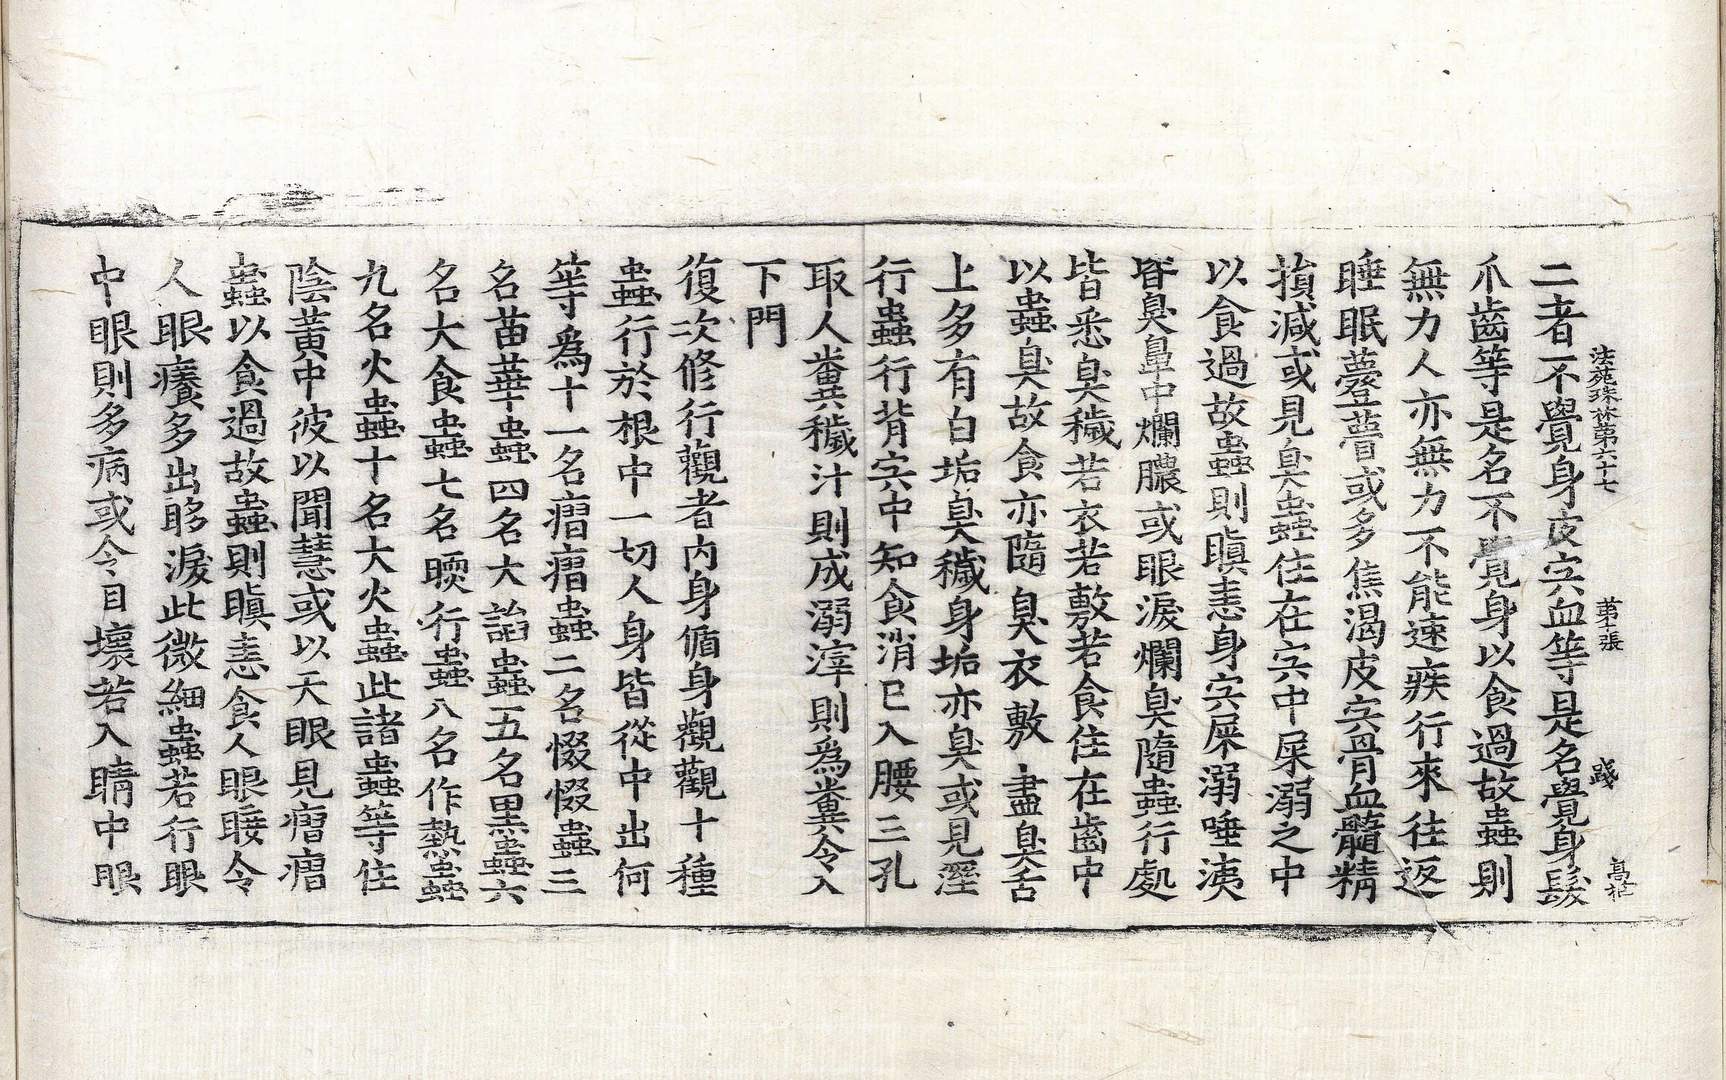 法苑珠林第六十七　第二張　踐　高柱
二者不覺身皮宍血等是名覺身髮
爪齒等是名不覺身以食過故蟲則
無力人亦無力不能速疾行來往返
睡眠薹瞢或多焦渴皮宍骨血髓精
損減或見臭蟲住在宍中屎溺之中
以食過故蟲則瞋恚身宍屎溺唾洟
皆臭鼻中爛膿或眼淚爛臭隨蟲行處
皆悉臭穢若衣若敷若食住在齒中
以蟲臭故食亦隨臭衣敷盡臭舌
上多有白垢臭穢身垢亦臭或見瘂
行蟲行背宍中知食消已入腰三孔
取人糞穢汁則成溺滓則爲糞令入
下門
復次修行觀者內身循身觀觀十種
蟲行於根中一切人身皆從中出何
等爲十一名瘤瘤蟲二名惙惙蟲三
名苗華蟲四名大諂蟲五名黑蟲六
名大食蟲七名㬉行蟲八名作熱蟲
九名火蟲十名大火蟲此諸蟲等住
陰黃中彼以聞慧或以天眼見瘤瘤
蟲以食過故蟲則瞋恚食人眼睫令
人眼癢多出眵淚此微細蟲若行眼
中眼則多病或令目壞若入睛中眼